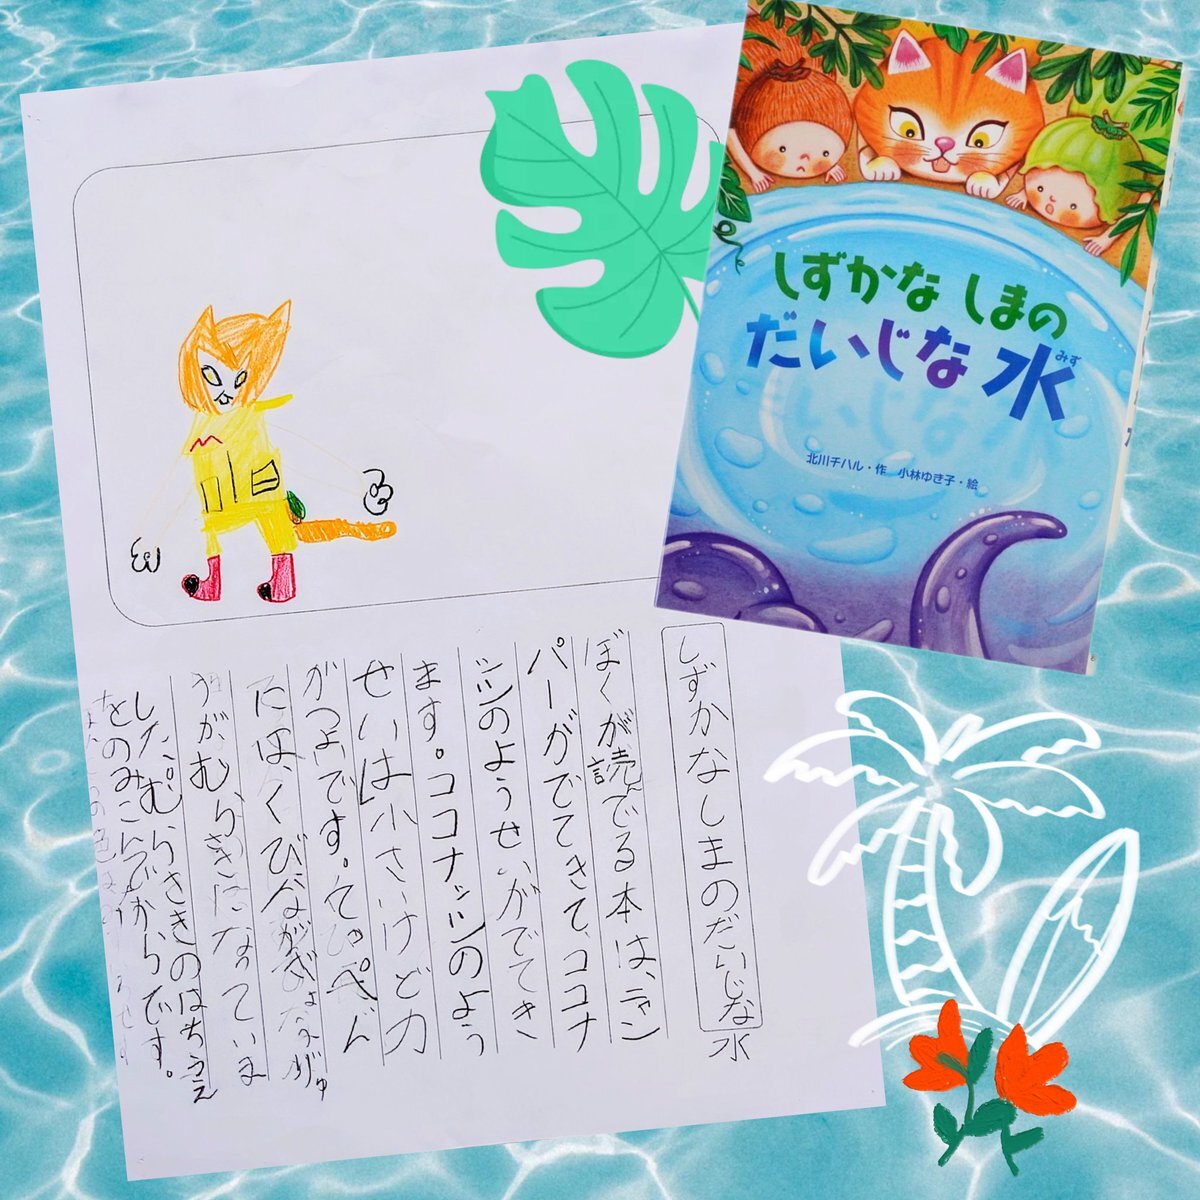 しずかな しまの
だいじな 水
みず
北川チハル・作 小林ゆき子・絵
しずかなしまのだいじな水
ぼくが読んでる本は、ニャン
パーがでてきて、ココナ
ッツのようせいがでてき
ます。ココナッツのよう
せいは小さいけど力
がつよいです。てっぺん
には、くびなが
うがむらさきになっていま
した。むらさきのはちうえ
をのみこんだからです。